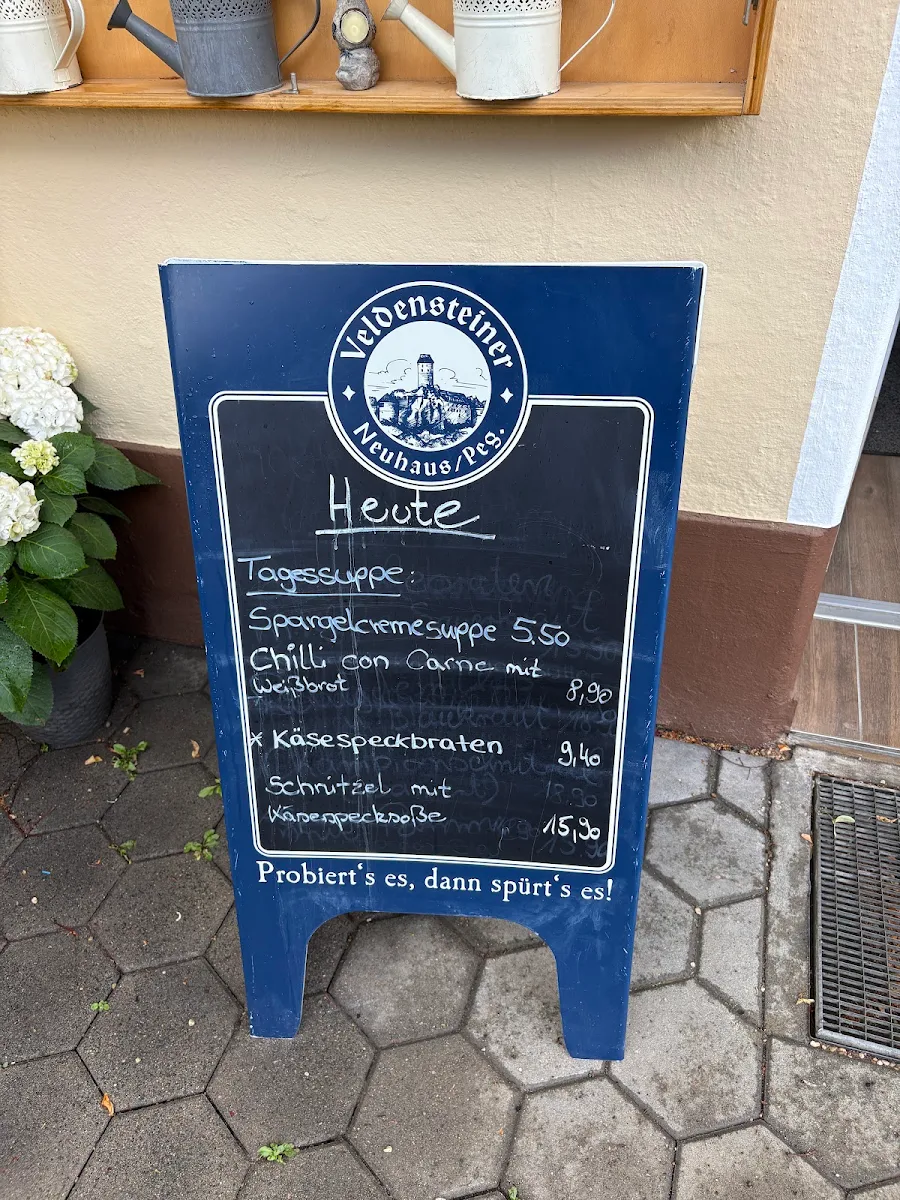 Veldensteiner
Neuhaus/Peg.
Heute
Tagessuppe:
Spargelcremesuppe 5,50
Chilli con Carne mit
Weißbrot 8,90
* Käsespeckbraten 9,40
Schnitzel mit
Käsespecksoße 15,90
Probiert's es, dann spürt's es!